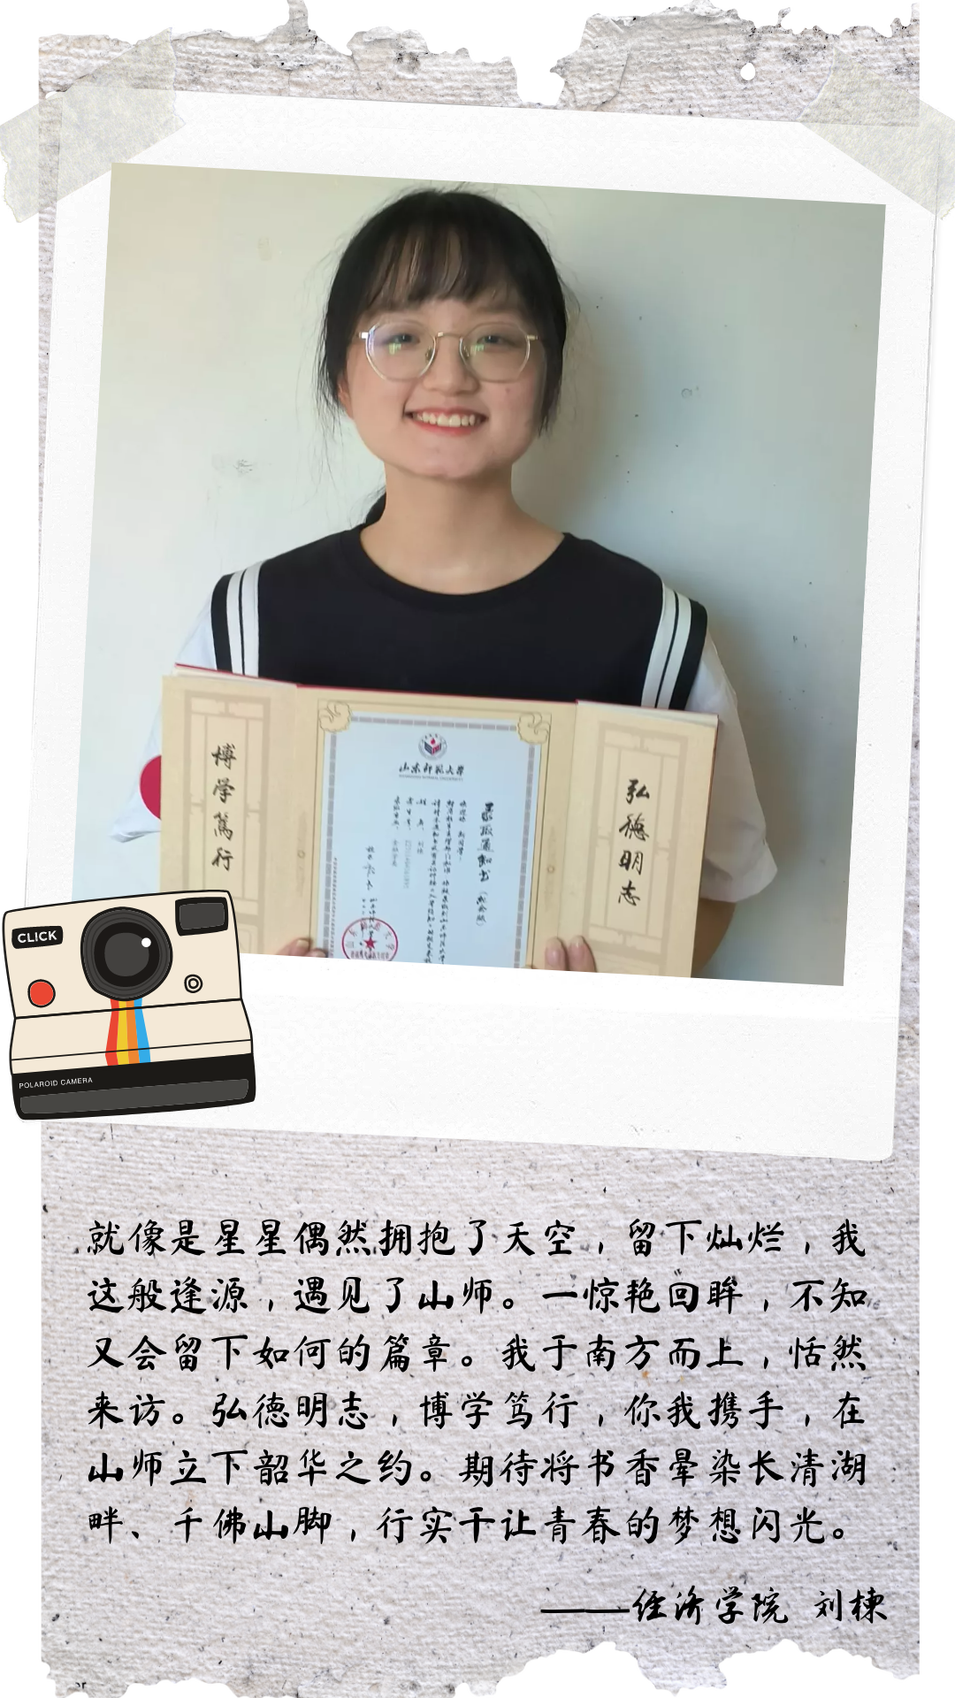 博学笃行
弘德明志
山东师范大学
录取通知书
CLICK
POLAROID CAMERA
就像是星星偶然拥抱了天空，留下灿烂，我
这般逢源，遇见了山师。一惊艳回眸，不知
又会留下如何的篇章。我于南方而上，恬然
来访。弘德明志，博学笃行，你我携手，在
山师立下韶华之约。期待将书香晕染长清湖
畔、千佛山脚，行实干让青春的梦想闪光。
——经济学院 刘楝